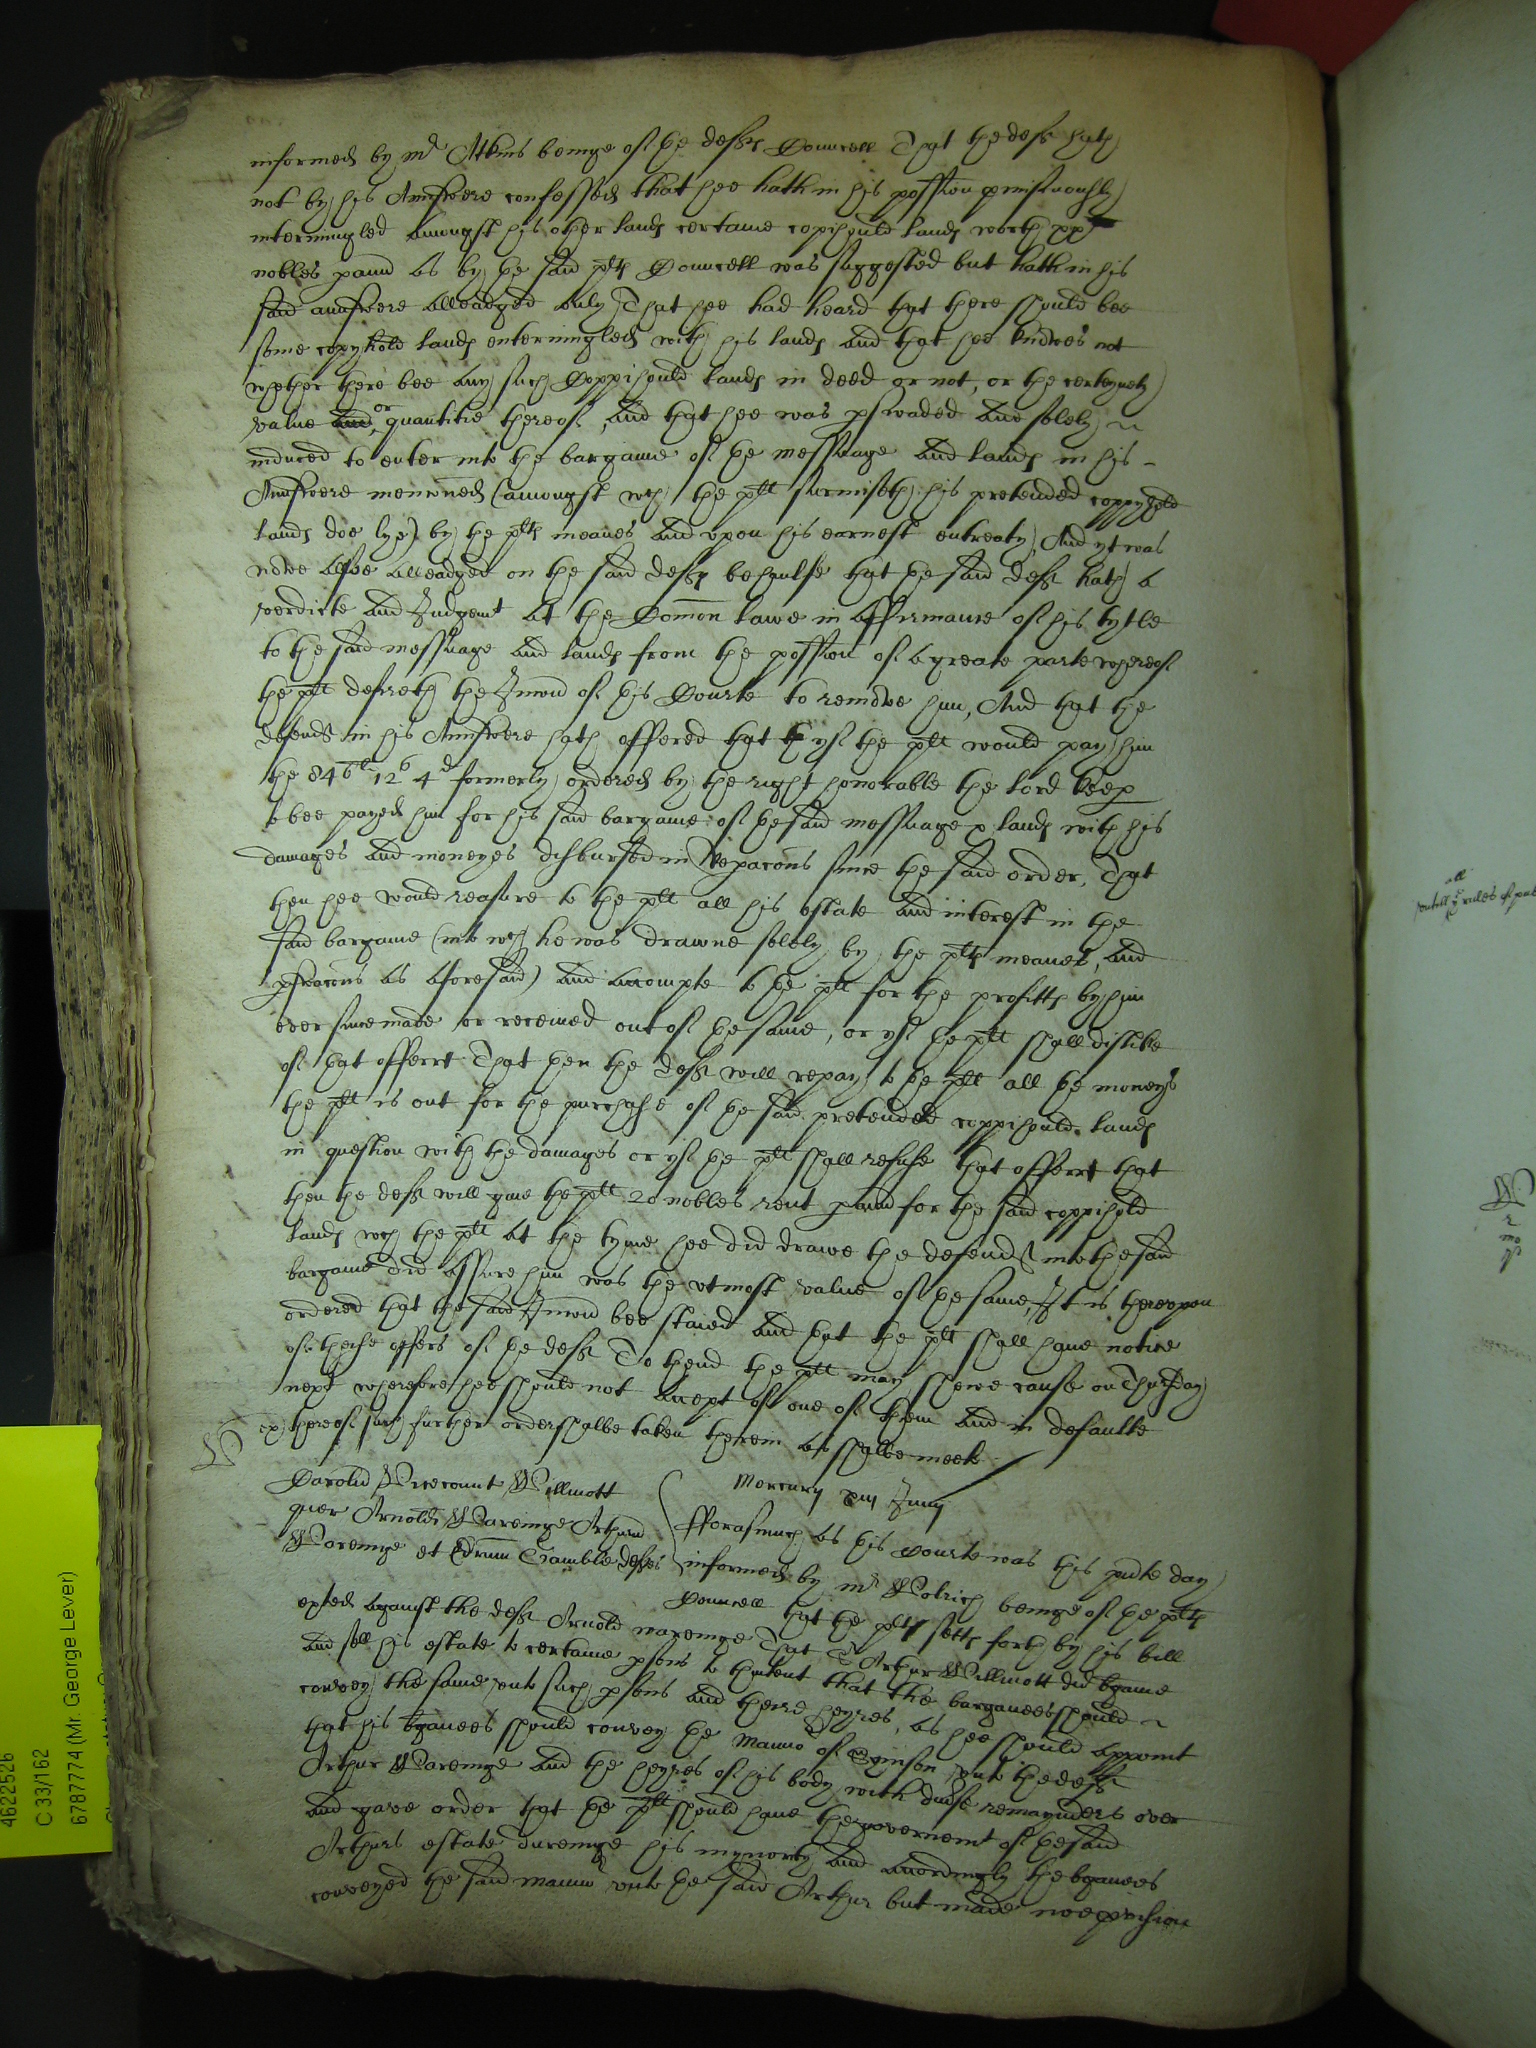 informed by Mr Atkins beinge of the defts Councell That the deft hath
not by his Aunswere confessed that hee hath in his possion pmiscuously
intermingled amongst his other lands certaine copihould lands worth xx
nobles p annu as by the said plts Councell was suggested but hath in his
said aunswere alleadged only That hee had heard that there should bee
some copyhold lands entermingled with his lands and that hee knowes not
whether there bee any such Coppihould lands in deed or not, or the certeynety
value and or quantitie thereof, and that hee was pswaded and solely
induced to enter into the bargaine of the messuage and lands in his
Aunswere menconed (amongst wch the plt surmiseth his pretended coppyhold
lands doe lye) by the plts meanes and vpon his earnest entreaty, And yt was
nowe alsoe alleadged on the said defts behaulfe that the said deft hath a
verdicte and Judgemt at the Comon lawe in affirmance of his tytle
to the said messuage and lands from the possion of a greate parte whereof
the plt desireth the Iniuncon of this Courte to remove him, And that the
defendt in his Aunswere hath offered that yf the plt would pay him
the 846li 12s 4d formerly ordered by the right honorable the lord Keep
to bee payed him for his said bargaine of the said messuage & lands with his
damages and moneyes disbursed in Repacons since the said order, That
then hee would reasure to the plt all his estate and interest in the
said bargaine (into wch he was drawne solely by the plts meanes, and
pswacons as aforesaid) and accompte to the plt for the profitts by him
ever since made or receiued out of the same, or yf the plt shall dislike
of that offerr That then the deft will repay to the plt all the moneys
the plt is out for the purchase of the said pretended coppihould lands
in question with the damages or yf the plt shall refuse that offerr that
then the deft will giue the plt 20 nobles rent p annu for the said coppihold
lands wch the plt at the tyme hee did drawe the defendt into the said
bargaine did assure him was the vtmost value of the same, It is therevpon
ordered that the said Iniuncon bee staied and that the plt shall haue notice
of these offers of the deft To thend the plt may shewe cause on Thursday
next wherefore hee should not accept of one of them and in defaulte
thereof such further order shalbe taken therein as shalbe meete
Carolus Vicecount Willmott
quer Arnoldus Wareinge Arthurus
Wareinge et Edrus Gamble defts
Mercurij xiij Junij
Fforasmuch as this Courte was this pnte day
informed by Mr Wolrich beinge of the plts
Councell that the plt setts forth by his bill
exhted against the deft Arnold wareinge That Arthur Willmott did bgaine
and sell his estate to certaine psons to thintent that the bargainees should
convey the same vnto such psons and theire heyres, as hee should appoint
that his bgainees should convey the Mannor of vnto the deft
Arthur Wareinge and the heyres of his body with diuse remaynders over
and gave order that the plt should haue the governemt of the said
Arthurs estate dureinge his mynority and accordingly the bgainees
conveyed the said mannor vnto the said Arthur but made noe pvision
4622526
C 33/162
6787774 (Mr. George Lever)
all